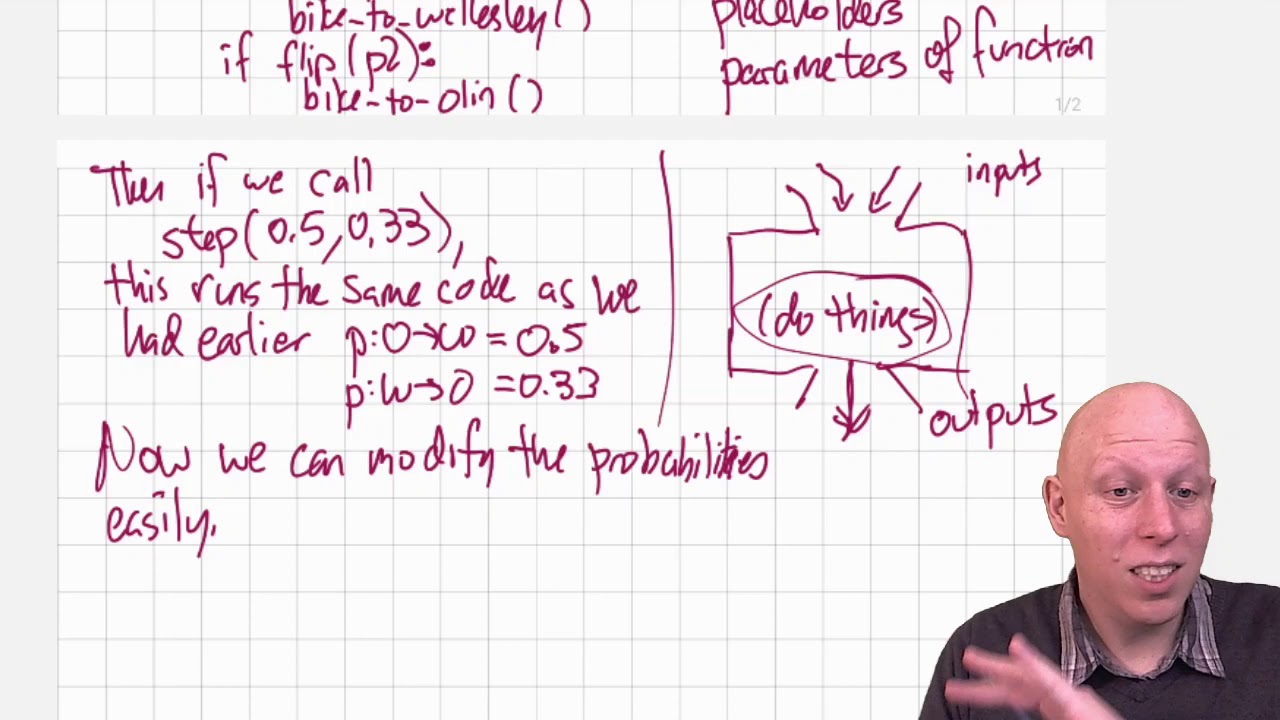 bike-to-wellesley()
if flip(p2):
bike-to-olin()
placeholders
parameters of function
1/2
Then if we call
step(0.5,0,33),
this runs the same code as we
had earlier p:O→W = 0.5
p:W→O =0.33
Now we can modify the probabilities
easily.
inputs
(do things)
outputs